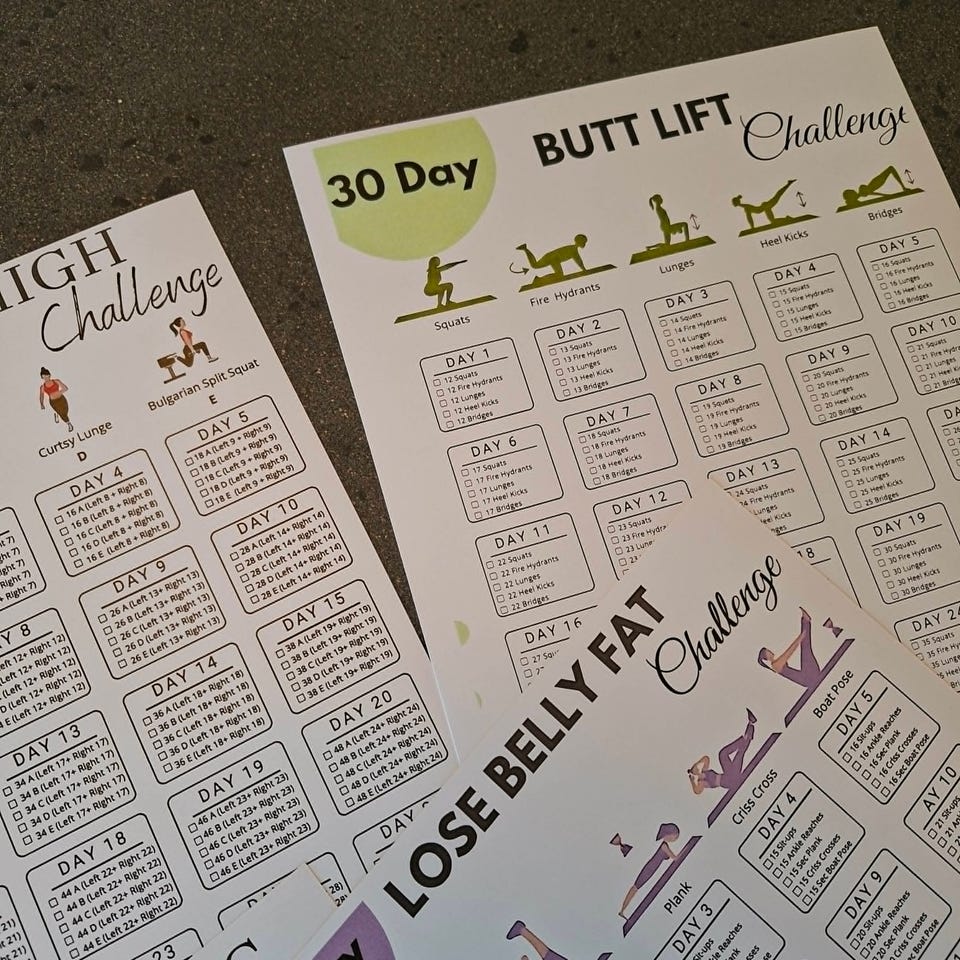 30 Day
BUTT LIFT
Challenge
Squats
Fire Hydrants
Lunges
Heel Kicks
Bridges
DAY 1
12 Squats
12 Fire Hydrants
12 Lunges
12 Heel Kicks
12 Bridges
DAY 2
13 Squats
13 Fire Hydrants
13 Lunges
13 Heel Kicks
13 Bridges
DAY 3
14 Squats
14 Fire Hydrants
14 Lunges
14 Heel Kicks
14 Bridges
DAY 4
15 Squats
15 Fire Hydrants
15 Lunges
15 Heel Kicks
15 Bridges
DAY 5
16 Squats
16 Fire Hydrants
16 Lunges
16 Heel Kicks
16 Bridges
DAY 6
17 Squats
17 Fire Hydrants
17 Lunges
17 Heel Kicks
17 Bridges
DAY 7
18 Squats
18 Fire Hydrants
18 Lunges
18 Heel Kicks
18 Bridges
DAY 8
19 Squats
19 Fire Hydrants
19 Lunges
19 Heel Kicks
19 Bridges
DAY 9
20 Squats
20 Fire Hydrants
20 Lunges
20 Heel Kicks
20 Bridges
DAY 10
21 Squats
21 Fire
21 Lunges
21 Heel
21
DAY 11
22 Squats
22 Fire Hydrants
22 Lunges
22 Heel Kicks
22 Bridges
DAY 12
23 Squats
23 Fire
23
DAY 13
24 Squats
Fire Hydrants
Lunges
Heel Kicks
DAY 14
25 Squats
25 Fire Hydrants
25 Lunges
25 Heel Kicks
25 Bridges
DAY 16
27
18
DAY 19
30 Squats
30 Fire Hydrants
30 Lunges
30 Heel Kicks
30 Bridges
DAY 24
35 Squats
35 Fire
35
HIGH
Challenge
Curtsy Lunge
D
Bulgarian Split Squat
E
DAY 4
16 A (Left 8 + Right 8)
16 B (Left 8 + Right 8)
16 C (Left 8 + Right 8)
16 D (Left 8 + Right 8)
16 E (Left 8 + Right 8)
DAY 5
18 A (Left 9 + Right 9)
18 B (Left 9 + Right 9)
18 C (Left 9 + Right 9)
18 D (Left 9 + Right 9)
18 E (Left 9 + Right 9)
8
DAY 9
26 A (Left 13+ Right 13)
26 B (Left 13+ Right 13)
26 C (Left 13+ Right 13)
26 D (Left 13+ Right 13)
26 E (Left 13+ Right 13)
DAY 10
28 A (Left 14+ Right 14)
28 B (Left 14+ Right 14)
28 C (Left 14+ Right 14)
28 D (Left 14+ Right 14)
28 E (Left 14+ Right 14)
DAY 13
34 A (Left 17+ Right 17)
34 B (Left 17+ Right 17)
34 C (Left 17+ Right 17)
34 D (Left 17+ Right 17)
34 E (Left 17+ Right 17)
DAY 14
36 A (Left 18+ Right 18)
36 B (Left 18+ Right 18)
36 C (Left 18+ Right 18)
36 D (Left 18+ Right 18)
36 E (Left 18+ Right 18)
DAY 15
38 A (Left 19+ Right 19)
38 B (Left 19+ Right 19)
38 C (Left 19+ Right 19)
38 D (Left 19+ Right 19)
38 E (Left 19+ Right 19)
DAY 18
44 A (Left 22+ Right 22)
44 B (Left 22+ Right 22)
44 C (Left 22+ Right 22)
44 D (Left 22+ Right 22)
44 E (Left 22+ Right 22)
DAY 19
46 A (Left 23+ Right 23)
46 B (Left 23+ Right 23)
46 C (Left 23+ Right 23)
46 D (Left 23+ Right 23)
46 E (Left 23+ Right 23)
DAY 20
48 A (Left 24+ Right 24)
48 B (Left 24+ Right 24)
48 C (Left 24+ Right 24)
48 D (Left 24+ Right 24)
48 E (Left 24+ Right 24)
23
DAY
LOSE BELLY FAT
Challenge
Plank
Criss Cross
Boat Pose
DAY 3
Ankle Reaches
Sec Plank
DAY 4
15 Sit-ups
15 Ankle Reaches
15 Sec Plank
15 Criss Crosses
15 Sec Boat Pose
DAY 5
16 Sit-ups
16 Ankle Reaches
16 Sec Plank
16 Criss Crosses
16 Sec Boat Pose
DAY 9
20 Sit-ups
20 Ankle Reaches
20 Sec Plank
20 Criss Crosses
Sec Boat Pose
AY 10
21 Sit-ups